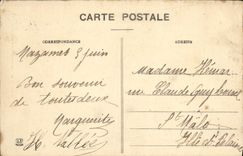 CARTE POSTALE
CORRESPONDANCE
ADRESSE
Mazamet 5 juin
Bon souvenir
de toutes deux
Marguerite
Madame Hémar
rue Claude
St Malo
Ille et Vilaine